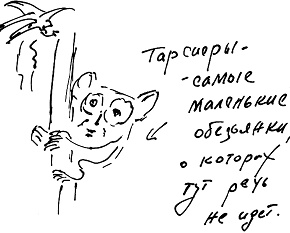 Тарсиеры-
-самые
маленькие
обезьянки,
о которах,
тут речь
не идет.